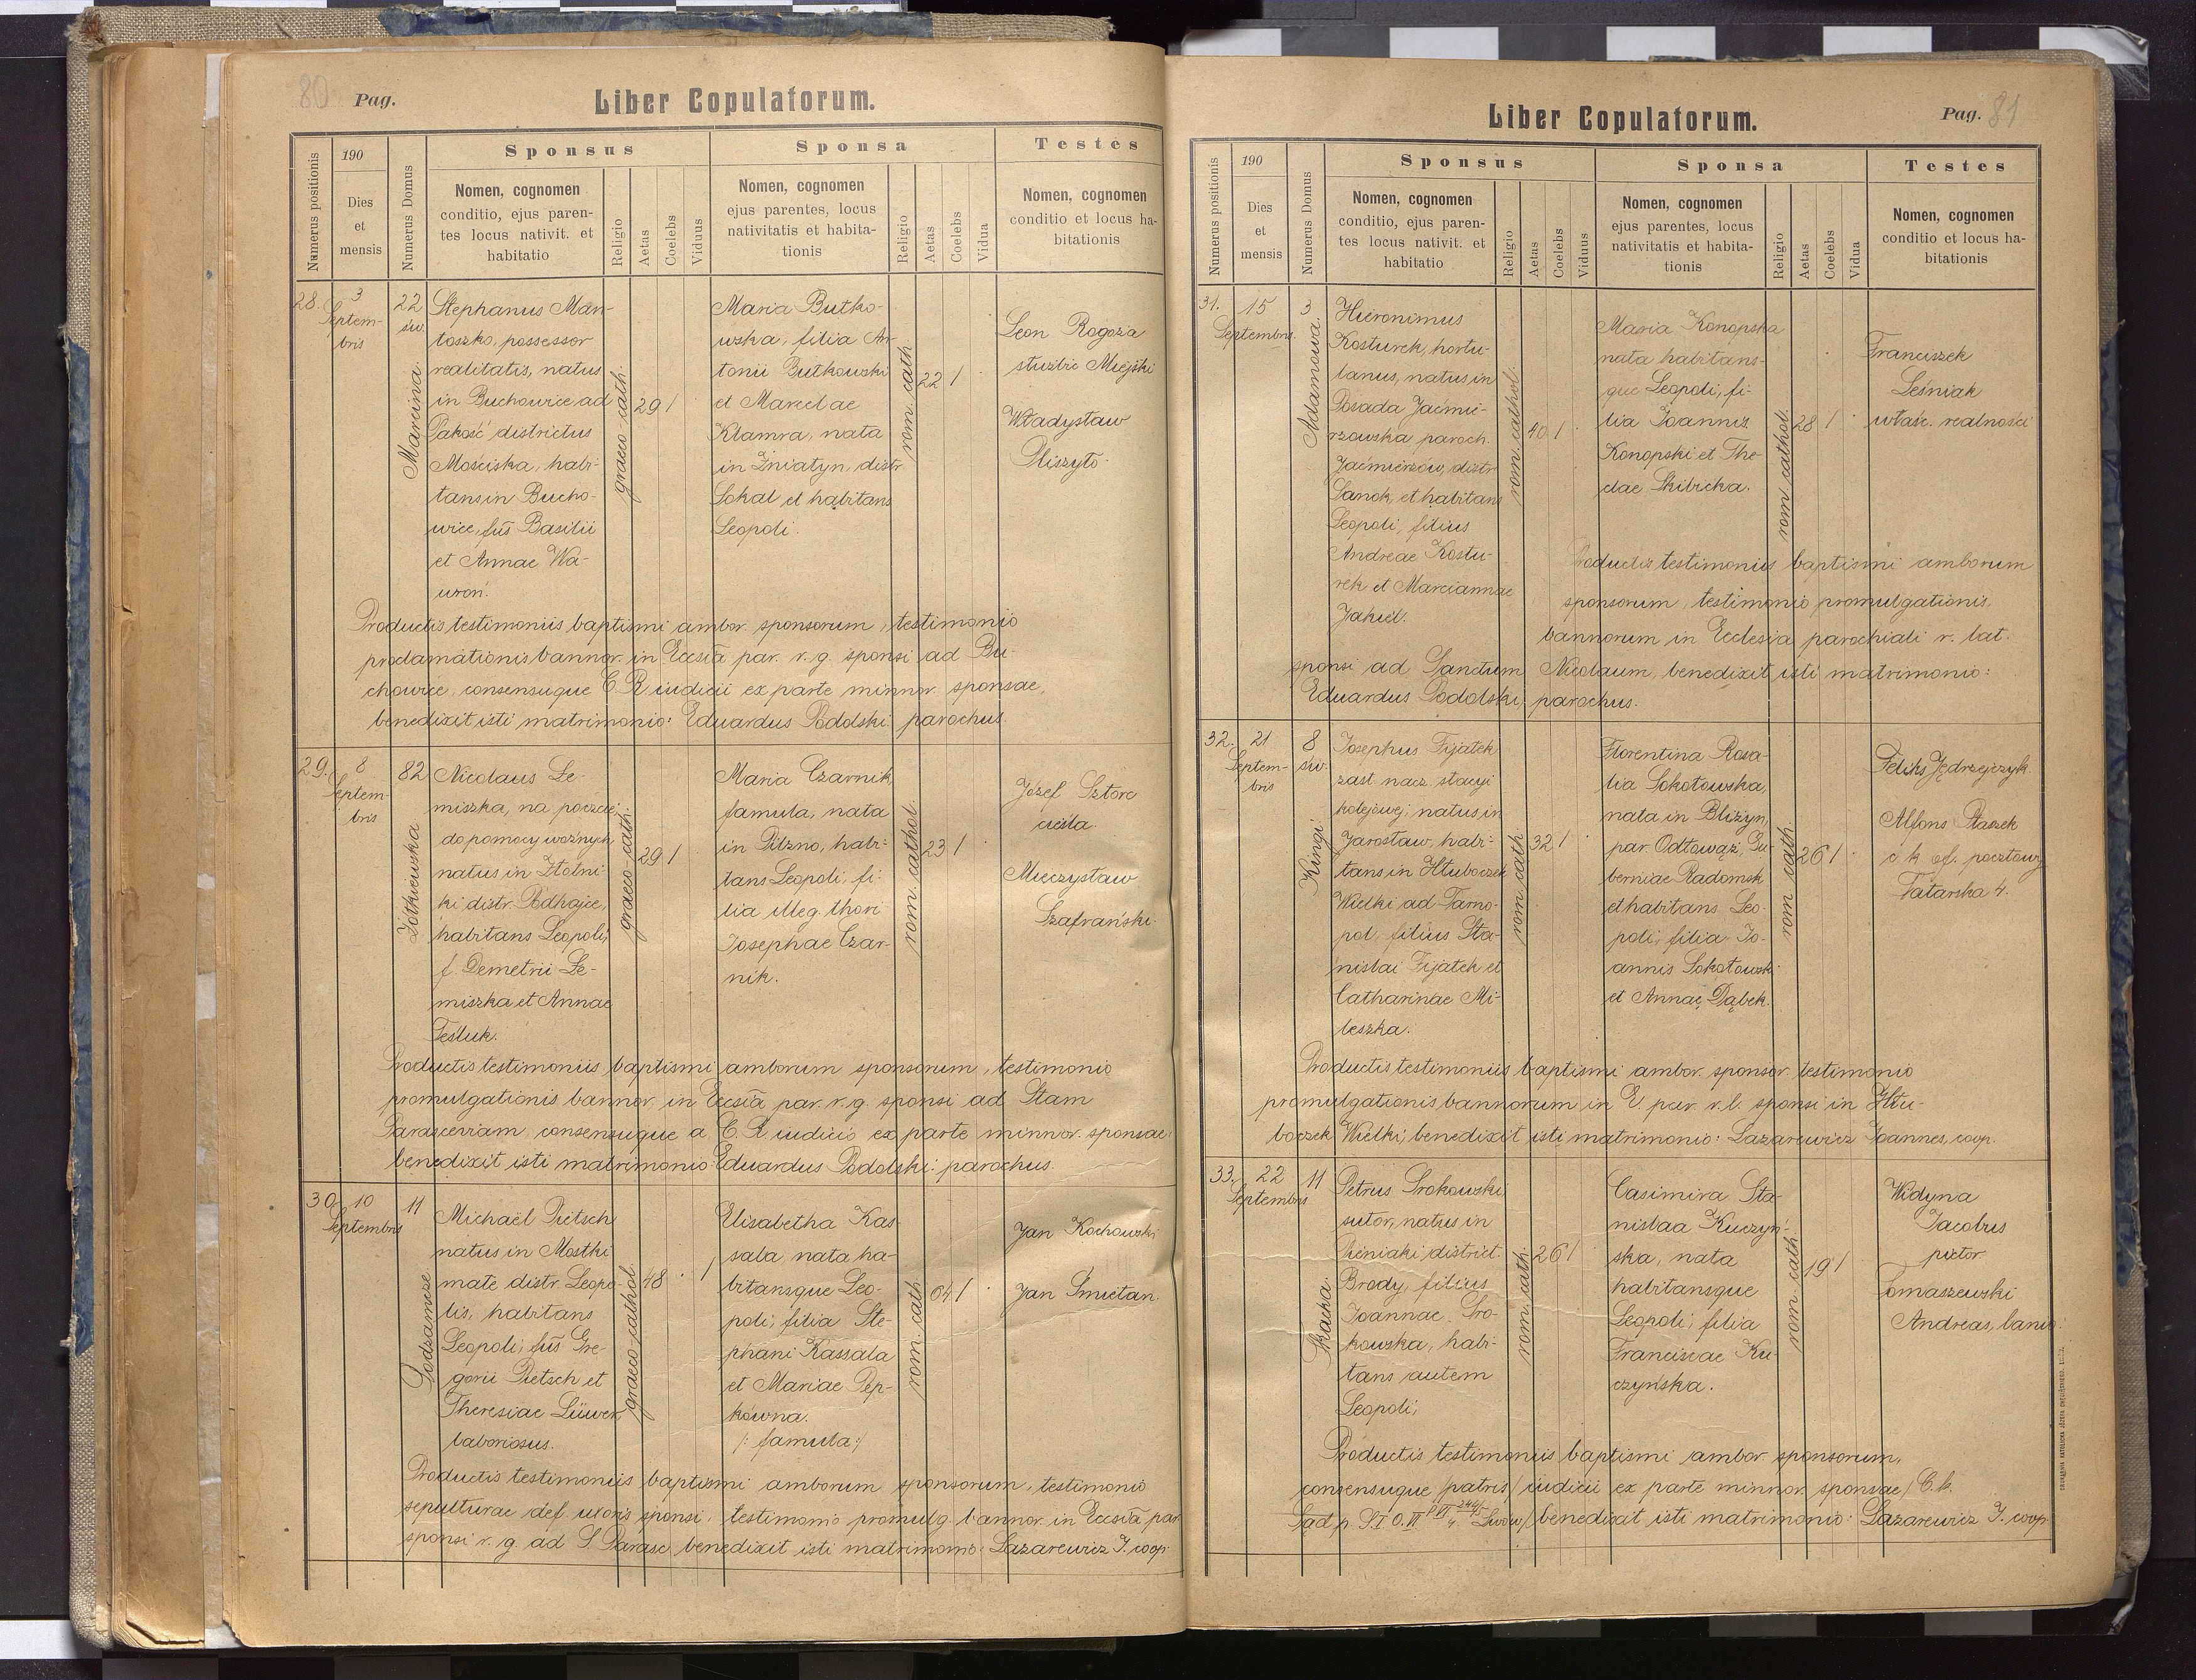 80 Pag.
Liber Copulatorum.
Numerus positionis
190
Dies
et
mensis
Numerus Domus
Sponsus
Nomen, cognomen
conditio, ejus paren-
tes locus nativit. et
habitatio
Religio
Aetas
Coelebs
Viduus
Sponsa
Nomen, cognomen
ejus parentes, locus
nativitatis et habita-
tionis
Religio
Aetas
Coelebs
Vidua
Testes
Nomen, cognomen
conditio et locus ha-
bitationis
28.
3
Septem-
bris
22
św.
Marcina
Stephanus Man-
toszko, possessor
realitatis, natus
in Buchowice ad
Pakość districtus
Mościska, habi-
tans in Bucho-
wice, fŭs Basilii
et Annae Wa-
wroń.
graeco-cath.
29
1
Maria Butko-
wska, filia An-
tonii Butkowski
et Marcelae
Klamra, nata
in Żniatyn, distr.
Sokal et habitans
Leopoli.
rom. cath.
22
1
Leon Rogoza
Miejski
Władysław
Productis testimoniis baptismi ambor. sponsorum, testimonio
proclamationis bannor. in Eccsiā par. r. g. sponsi ad Bu-
chowice, consensuque C. R. iudicii ex parte minnor. sponsae,
benedixit isti matrimonio: Eduardus Podolski parochus.
29.
8
Septem-
bris
82
Żółkiewska
Nicolaus Łe-
miszka, na poczcie
do pomocy woźnych
natus in Złotni-
ki distr. Podhajce,
habitans Leopoli,
f. Demetrii Łe-
miszka et Annae
Tesluk.
graeco-cath.
29
1
Maria Czarnik,
famula, nata
in Pilzno, habi-
tans Leopoli, fi-
lia illeg. thori
Josephae Czar-
nik.
rom. cathol.
23
1
Józef Sztorc
cieśla.
Mieczysław
Szafrański.
Productis testimoniis baptismi amborum sponsorum, testimonio
promulgationis bannor. in Eccsiā par. r. g. sponsi ad Stam
Parasceviam, consensuque a C. R. iudicio ex parte minnor. sponsae:
benedixit isti matrimonio: Eduardus Podolski: parochus.
30.
10
Septembris
11
Podzamcze
Michaël Pietsch
natus in Mostki
małe distr. Leopo-
lis, habitans
Leopoli, fŭs Gre-
gorii Pietsch et
Theresiae Lüwer,
laboriosus.
graeco-cathol.
48
1
Elisabetha Kas-
sala nata ha-
bitansque Leo-
poli, filia Ste-
phani Kassala
et Mariae Pep-
kówna.
/: famula :/
rom. cath.
64
1
Jan Kochowski
Jan Śmietan.
Productis testimoniis baptismi amborum sponsorum, testimonio
sepulturae def. uxoris sponsi, testimonio promulg. bannor. in Eccsiā par.
sponsi r. g. ad S. Parasc. benedixit isti matrimonio: Lazarewicz J. coop.
Liber Copulatorum.
Pag. 81
Numerus positionis
190
Dies
et
mensis
Numerus Domus
Sponsus
Nomen, cognomen
conditio, ejus paren-
tes locus nativit. et
habitatio
Religio
Aetas
Coelebs
Viduus
Sponsa
Nomen, cognomen
ejus parentes, locus
nativitatis et habita-
tionis
Religio
Aetas
Coelebs
Vidua
Testes
Nomen, cognomen
conditio et locus ha-
bitationis
31.
15
Septembris.
3
Adamowa.
Hieronimus
Kosturek, hortu-
lanus, natus in
Posada Jaćmie-
rzowska paroch.
Jaćmierzów, distr.
Sanok, et habitans
Leopoli, filius
Andreae Kostu-
rek et Mariannae
Jakiel.
rom. cathol.
40
1
Maria Konopska
nata habitans-
que Leopoli, fi-
lia Joannis
Konopski et The-
clae Skibicka.
rom. cathol.
28
1
Franciszek
Leśniak
właśc. realności
Productis testimoniis baptismi amborum
sponsorum, testimonio promulgationis
bannorum in Ecclesia parochiali r. lat.
sponsi ad Sanctum Nicolaum, benedixit isti matrimonio:
Eduardus Podolski, parochus.
32.
21
Septem-
bris
8
św.
Kingi
Josephus Fijałek
zast. nacz. stacyi
kolejowej, natus in
Jarosław, habi-
tans in Hłuboczek
Wielki ad Tarno-
pol, filius Sta-
nislai Fijałek et
Catharinae Mi-
leszka.
rom. cath.
32
1
Florentina Rosa-
lia Sokołowska,
nata in Bliżyn,
par. Odrowąż, Gu-
berniae Radomsk
et habitans Leo-
poli, filia Jo-
annis Sokołowski
et Annae Dąbek.
rom. cath.
26
1
Feliks Jędrzejczyk
Alfons Ptaszek
c k of. pocztowy
Tatarska 4.
Productis testimoniis baptismi ambor. sponsor. testimonio
promulgationis bannorum in E. par. r. l. sponsi in Hłu-
boczek Wielki, benedixit isti matrimonio: Lazarewicz Joannes, coop.
33.
22
Septembris
11
Petrus Srokowski
sutor, natus in
Pieniaki district.
Brody, filius
Joannae Sro-
kowska, habi-
tans autem
Leopoli,
rom. cath.
26
1
Casimira Sta-
nislaa Kuczyń-
ska, nata
habitansque
Leopoli, filia
Franciscae Ku-
czyńska.
rom. cath.
19
1
Widyna
Jacobus
pictor
Tomaszewski
Andreas, lanio.
Productis testimoniis baptismi ambor. sponsorum,
consensuque /patris/ iudicii ex parte minnor. sponsae / C. k.
Sąd p. S. I O. VI Lwów/ benedixit isti matrimonio: Lazarewicz J. coop.